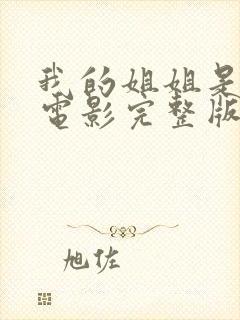 我的姐姐是
电影完整版
旭佐